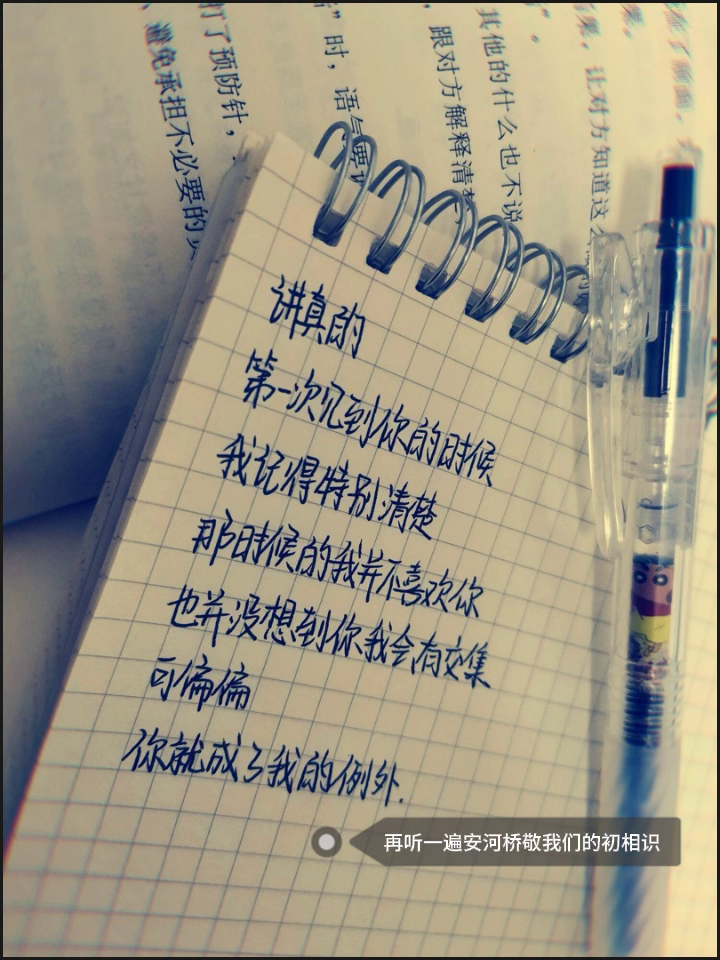 讲真的
第一次见到你的时候
我记得特别清楚
那时候的我并不喜欢你
也并没想到你我会有交集
可偏偏
你就成了我的例外.
再听一遍安河桥敬我们的初相识
让对方知道这
其他的什么也不说
跟对方解释清
”时，语气要
打了预防针，
避免承担不必要的